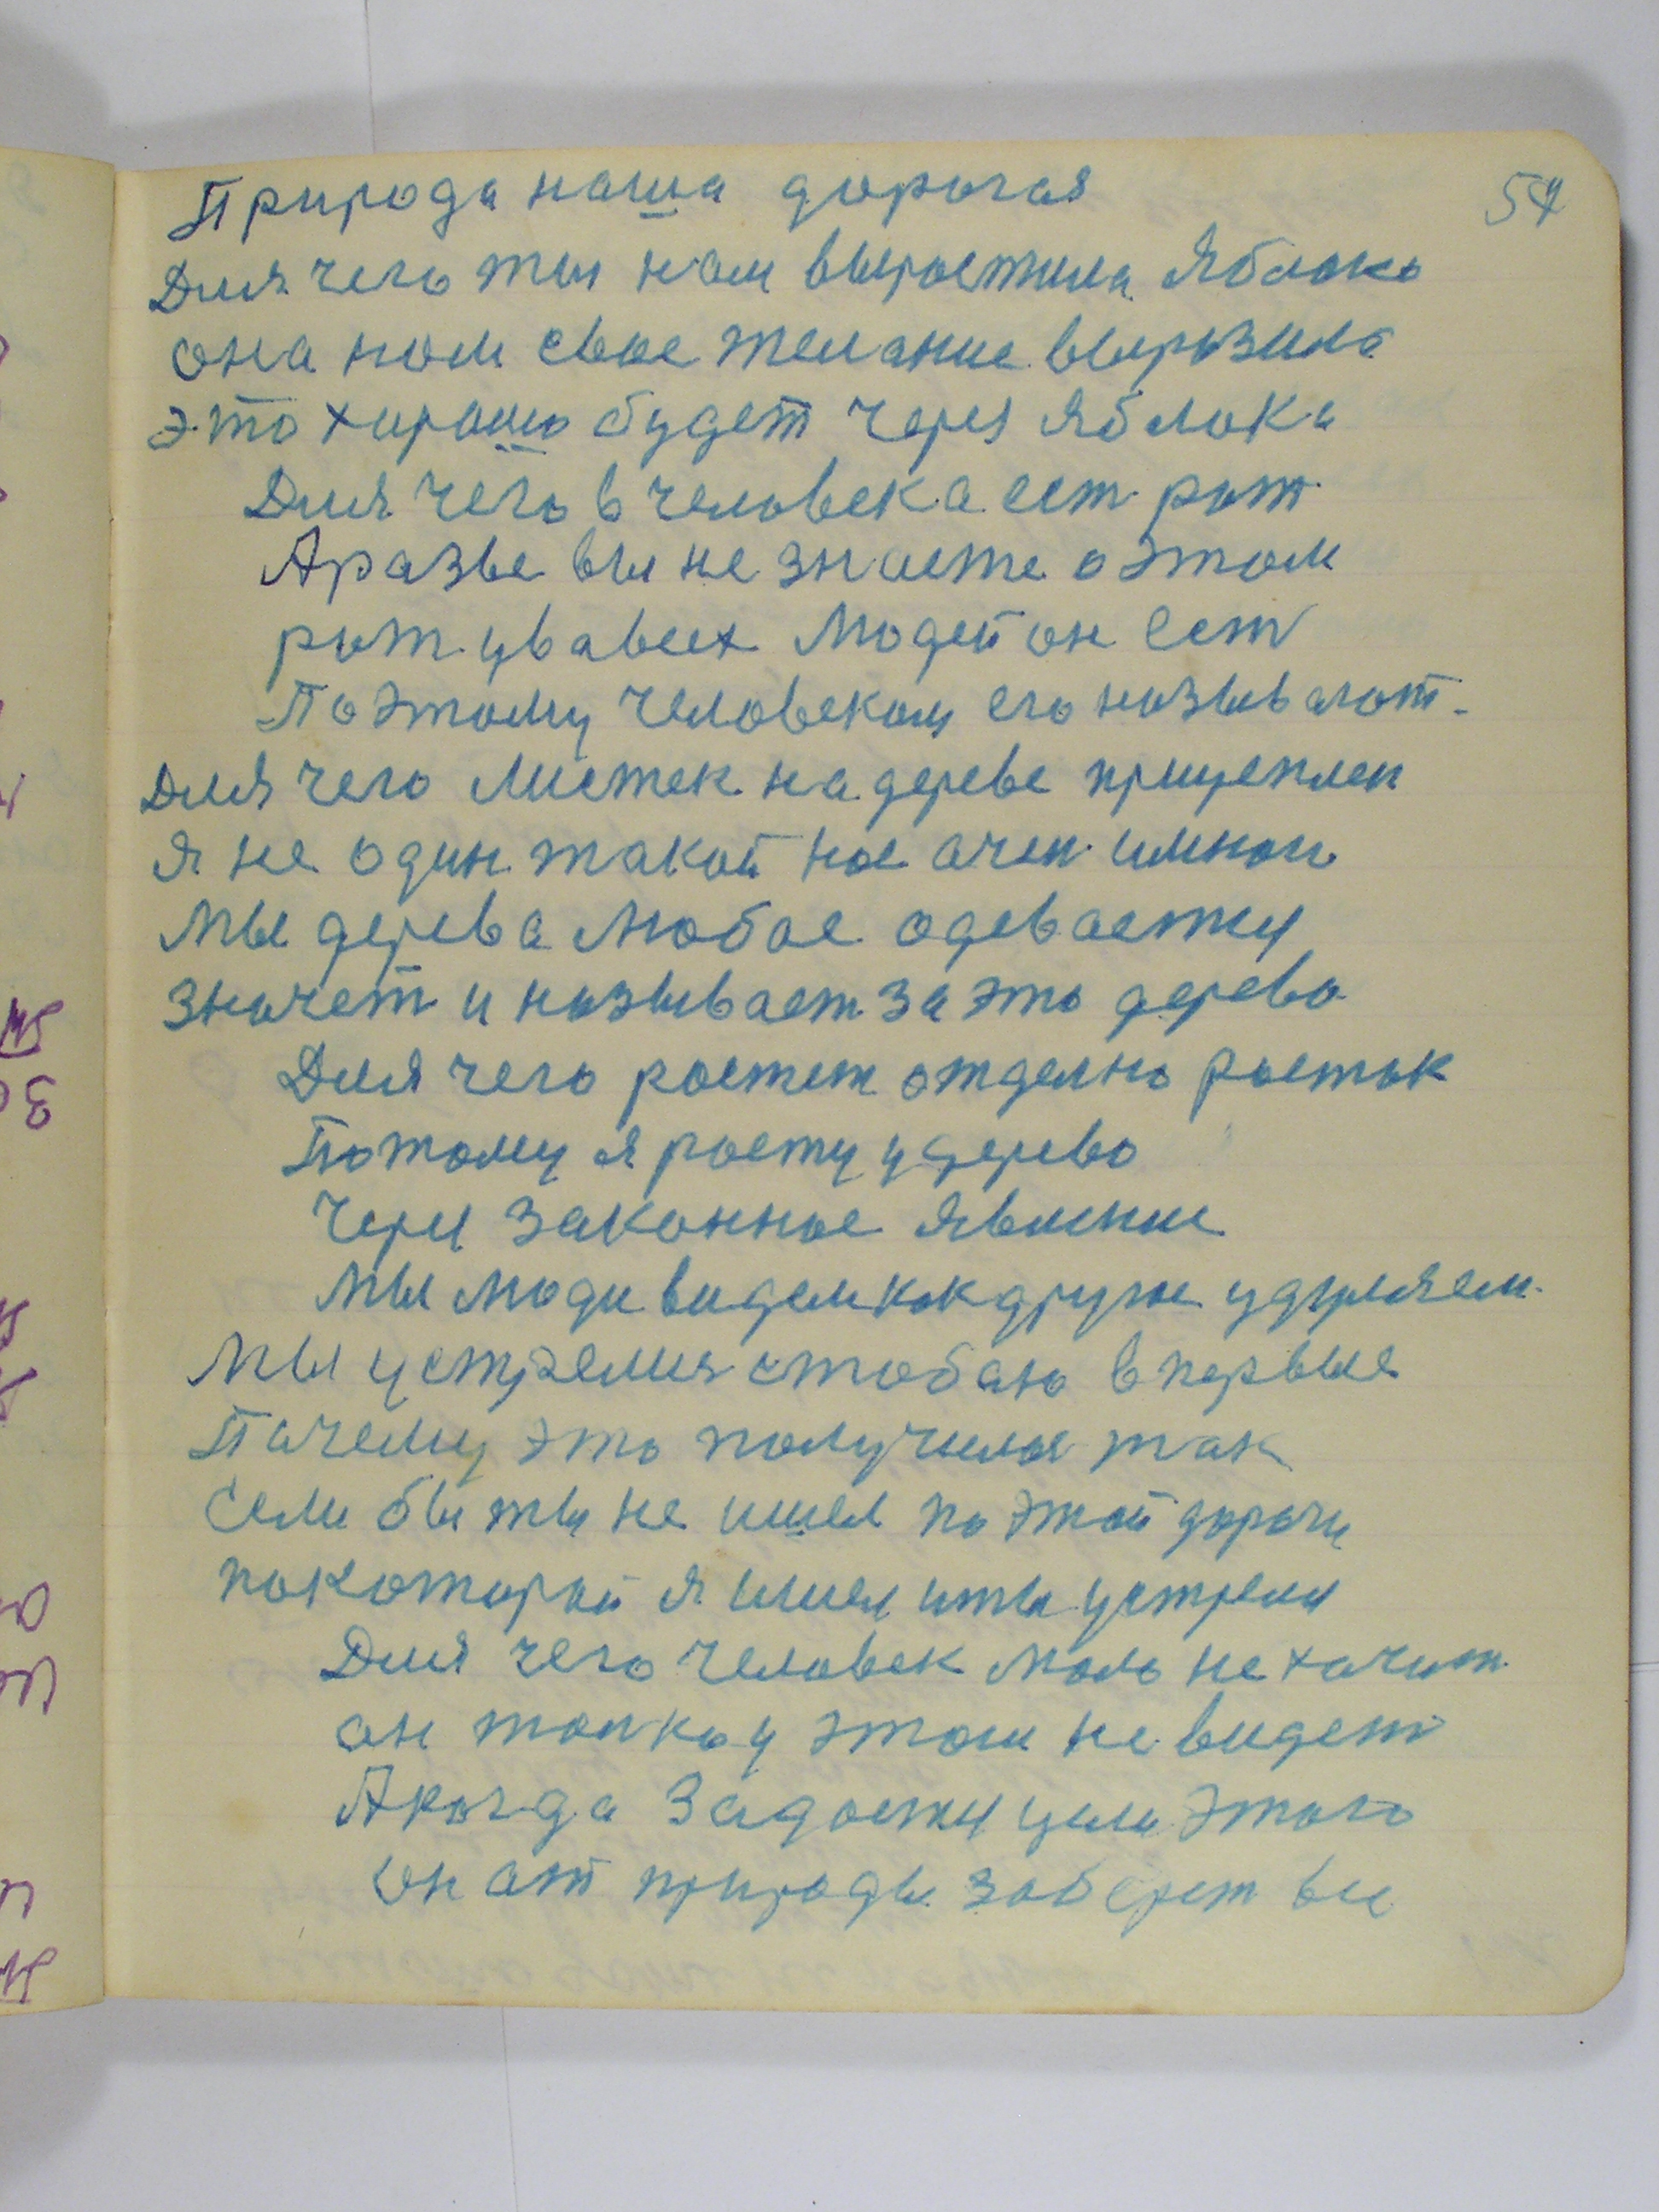 54
Природа наша дорогая
Для чего ты нам выростила Яблоко
она нам свое желание выразила
это хорошо будет через яблока
Для чего в человека ест рот
А разве вы не знаете о этом
рот ув авсех людей он ест
Поэтому человеком его называют.
Для чего листек на дереве прицеплен
я не один такой нас очен много
мы дерева любое одеваем
значет и називает за это дерево
Для чего ростет отделно росток
Потому я росту у дерево
Через законное явление
мы люди видем как други
мы устрелися стобою впервые
Почему это получилося так
Если бы ты не ишел по этой дороги
по которой я ишел ты устрел
Для чего человек мало не хочит
он толко у этом не видет
А когда этого
он от природы заберет все